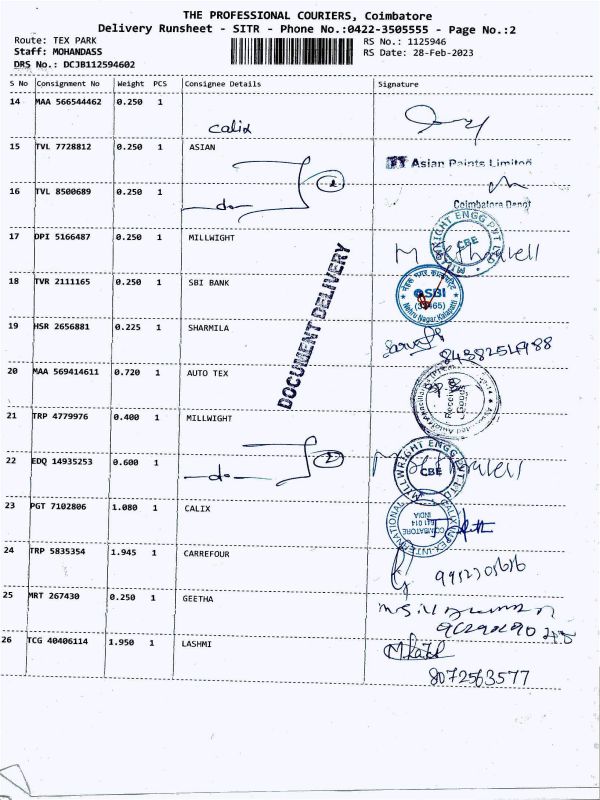 THE PROFESSIONAL COURIERS, Coimbatore
Delivery Runsheet - SITR - Phone No.:0422-3505555 - Page No.:2
Route: TEX PARK
RS No.: 1125946
Staff: MOHANDASS
RS Date: 28-Feb-2023
DRS No.: DCJB112594602
S No Consignment No Weight PCS Consignee Details Signature
14 MAA 566544462 0.250 1
Calix
15 TVL 7728812 0.250 1 ASIAN
Asian Paints Limited
16 TVL 8500689 0.250 1
-do- 2
Coimbatore Depot
17 DPI 5166487 0.250 1 MILLWIGHT
MILLWRIGHT ENGG PVT LTD
CBE
18 TVR 2111165 0.250 1 SBI BANK
SBI
Nehru Nagar, Kalapatti
19 HSR 2656881 0.225 1 SHARMILA
DOCUMENT DELIVERY
20 MAA 569414611 0.720 1 AUTO TEX
Received Goods
21 TRP 4779976 0.400 1 MILLWIGHT
22 EDQ 14935253 0.600 1
-do- 2
MILLWRIGHT ENGG PVT LTD
CBE
23 PGT 7102806 1.080 1 CALIX
CALIX IMPEX-INTERNATIONAL
COIMBATORE
641 014
INDIA
24 TRP 5835354 1.945 1 CARREFOUR
25 MRT 267430 0.250 1 GEETHA
26 TCG 40406114 1.950 1 LASHMI
8072563577